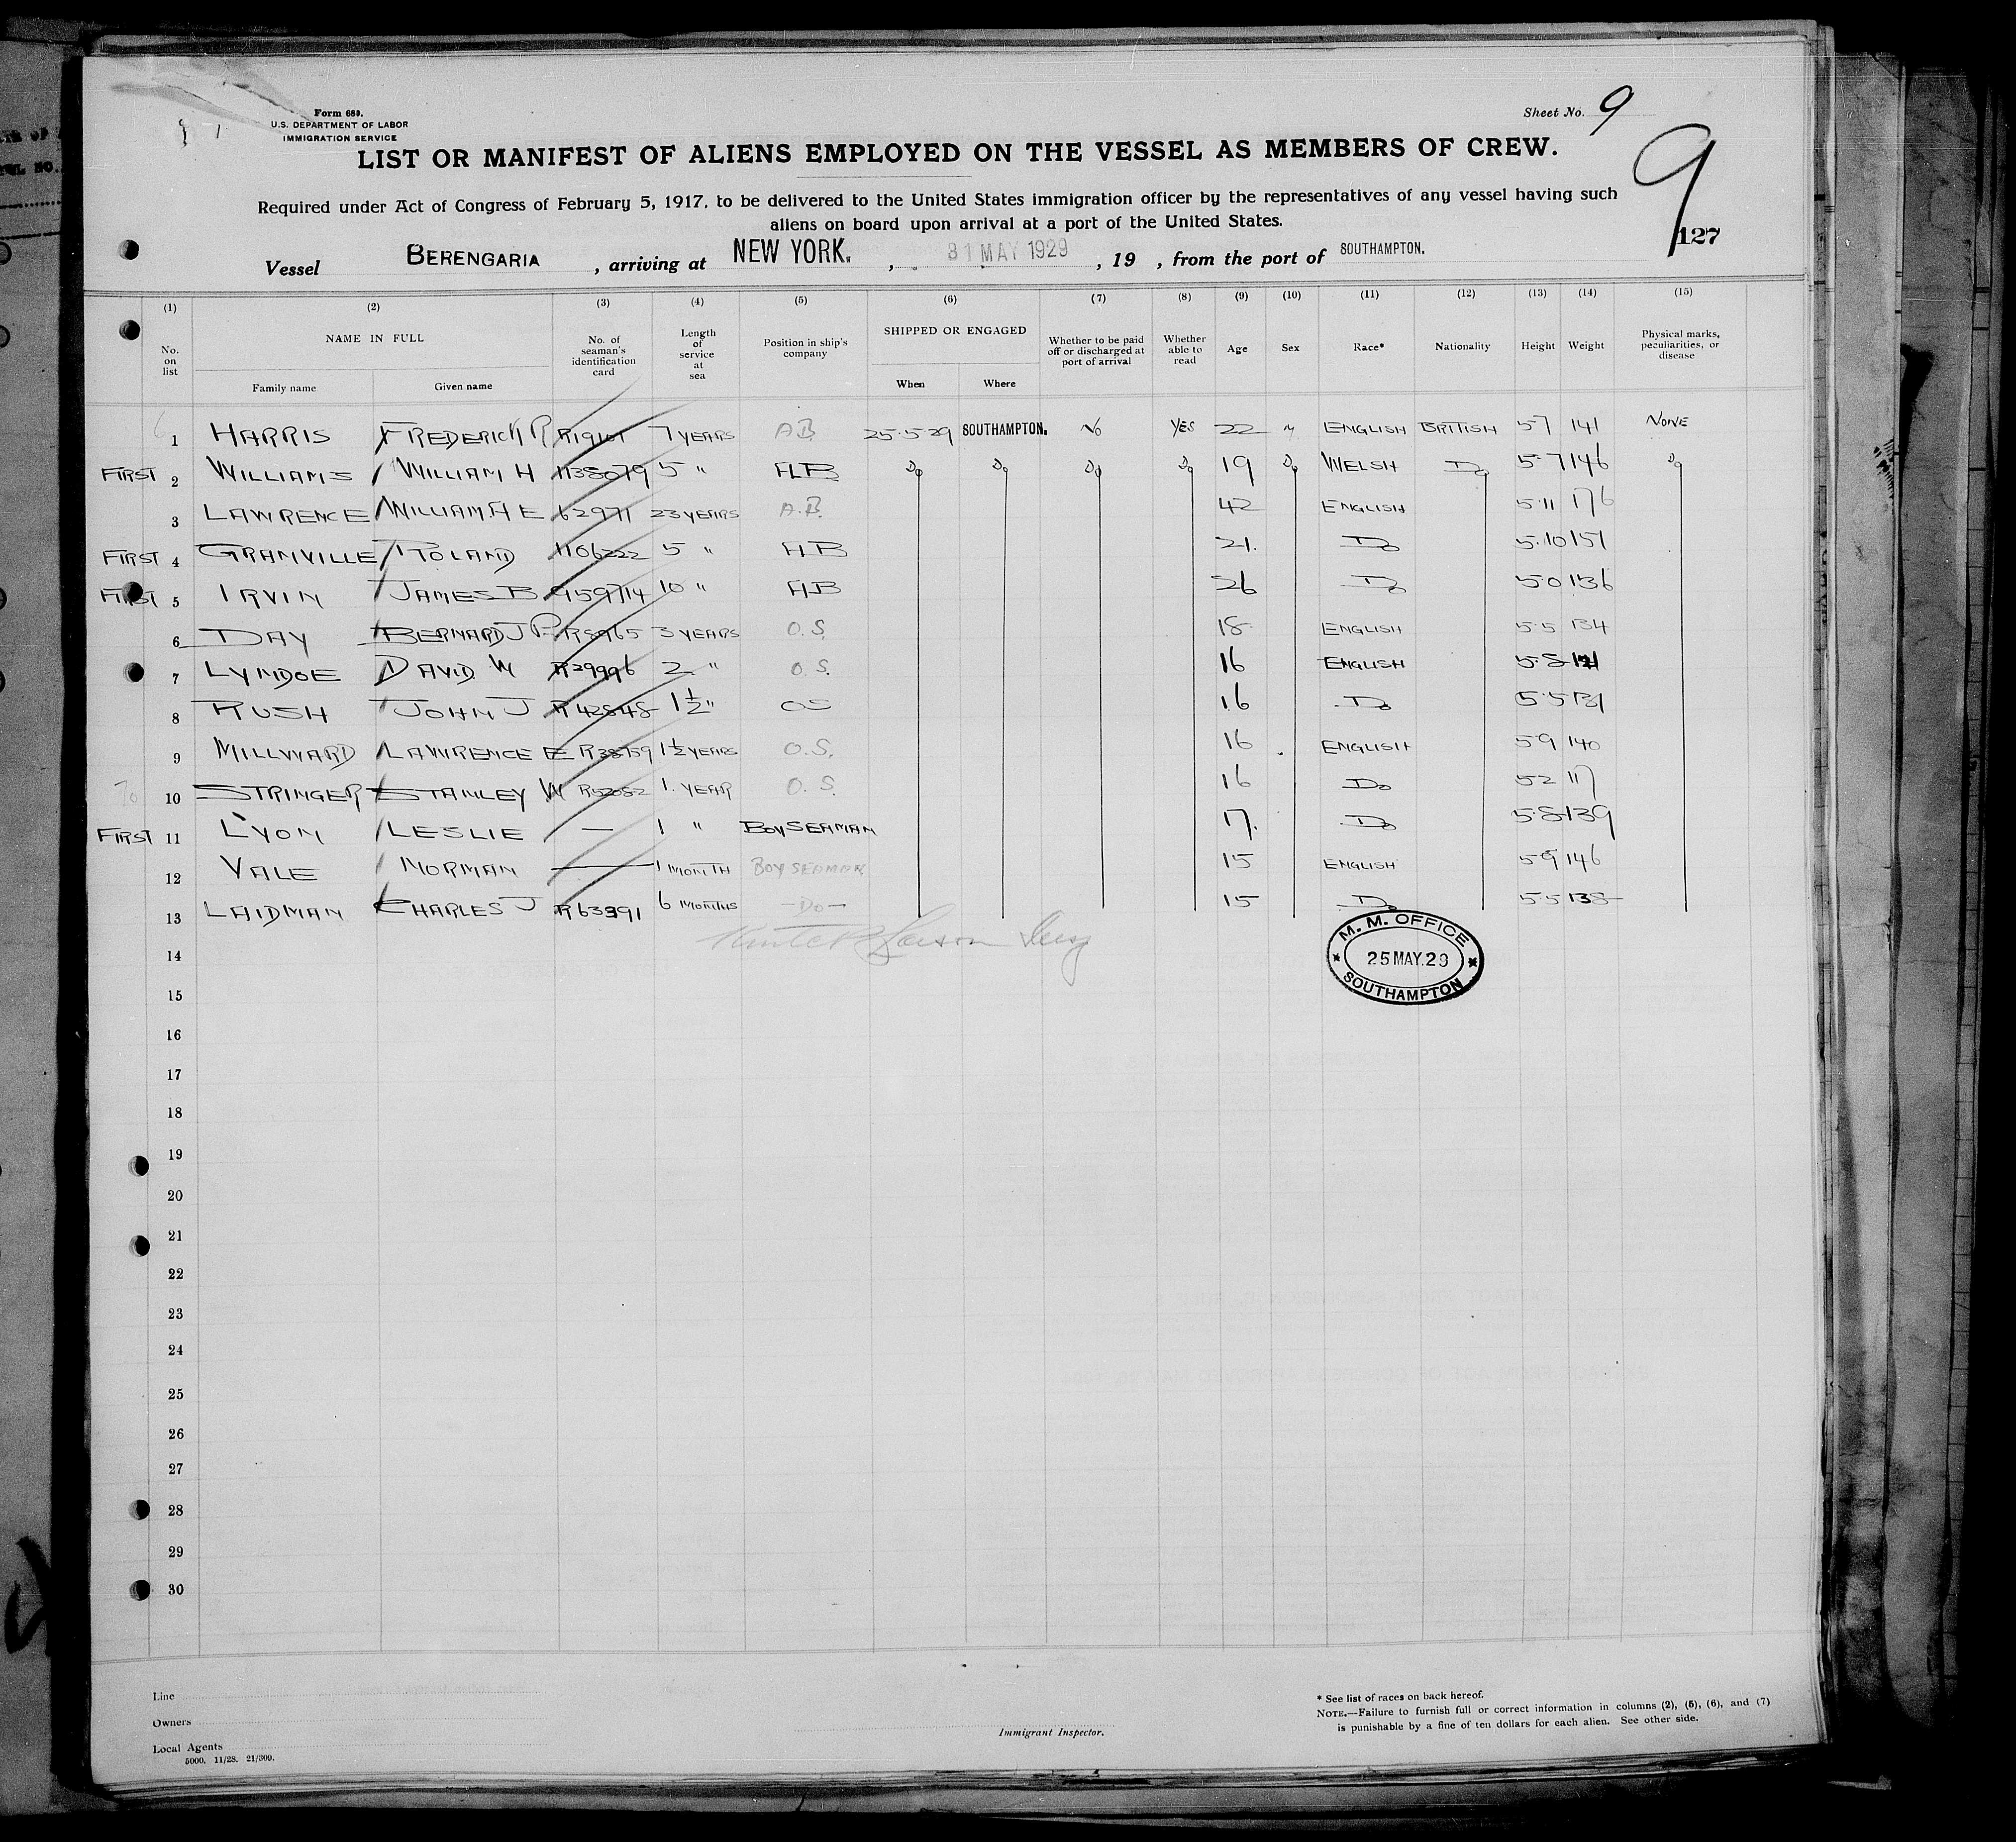 Form 680.
U.S. DEPARTMENT OF LABOR
IMMIGRATION SERVICE
Sheet No. 9
LIST OR MANIFEST OF ALIENS EMPLOYED ON THE VESSEL AS MEMBERS OF CREW.
9
Required under Act of Congress of February 5, 1917, to be delivered to the United States immigration officer by the representatives of any vessel having such
aliens on board upon arrival at a port of the United States.
127
Vessel BERENGARIA, arriving at NEW YORK., 31 MAY 1929, 19 , from the port of SOUTHAMPTON.
(1) (2) (3) (4) (5) (6) (7) (8) (9) (10) (11) (12) (13) (14) (15)
No. on list NAME IN FULL No. of seaman's identification card Length of service at sea Position in ship's company SHIPPED OR ENGAGED Whether to be paid off or discharged at port of arrival Whether able to read Age Sex Race* Nationality Height Weight Physical marks, peculiarities, or disease
Family name Given name When Where
1 HARRIS FREDERICK R 7 YEARS A B 25.5.29 SOUTHAMPTON. NO YES 22 M ENGLISH BRITISH 5 7 141 NONE
FIRST 2 WILLIAMS WILLIAM H 1138079 5 " A B Do Do Do Do 19 Do WELSH Do 5.7 146 Do
3 LAWRENCE WILLIAM A E 62971 23 YEARS A.B. 42 ENGLISH 5.11 176
FIRST 4 GRANVILLE ROLAND 1106222 5 " A B 21. Do 5.10 151
FIRST 5 IRVIN JAMES B 10 " A B 26 Do 5 0 136
6 DAY BERNARD J P. R8965 3 YEARS O.S. 18 ENGLISH 5 5 134
7 LYNDOE DAVID W R29996 2 " O.S. 16 ENGLISH 5.8
8 RUSH JOHN J R 42848 1½ " OS 16 Do 5.5 131
9 MILLWARD LAWRENCE E R38759 1½ YEARS O.S. 16 ENGLISH 5 9 140
10 STRINGER STANLEY W R52082 1. YEAR O.S. 16 Do 5 2 117
FIRST 11 LYON LESLIE — 1 " BOY SEAMAN 17. Do 5.8 139
12 VALE NORMAN — 1 MONTH BOY SEAMAN 15 ENGLISH 5 9 146
13 LAIDMAN CHARLES J R63391 6 MONTHS —Do— 15 Do 5 5 138
14
M. M. OFFICE
25 MAY.29
SOUTHAMPTON
15
16
17
18
19
20
21
22
23
24
25
26
27
28
29
30
Line
Owners
Local Agents
5000. 11/28. 21/309.
Immigrant Inspector.
* See list of races on back hereof.
NOTE.—Failure to furnish full or correct information in columns (2), (5), (6), and (7)
is punishable by a fine of ten dollars for each alien. See other side.